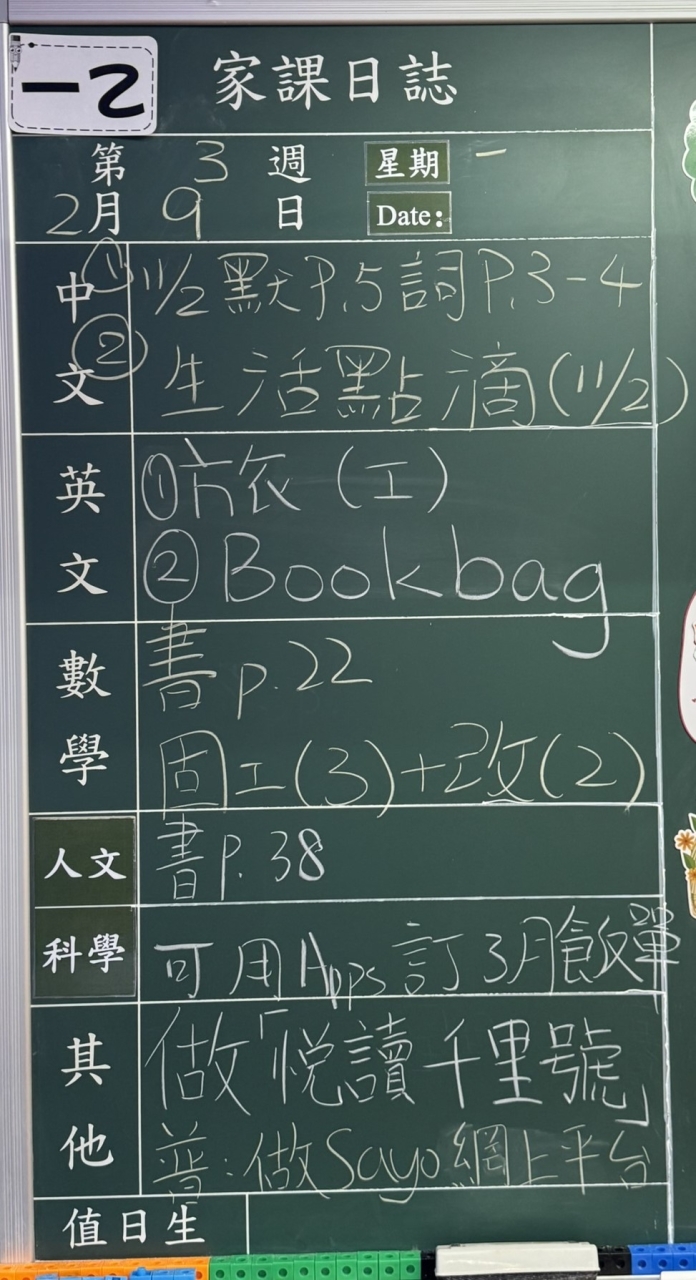 一乙
家課日誌
第 3 週 星期 一
2月 9 日 Date:
中文 ① 11/2 默P.5 詞P.3-4
② 生活點滴(11/2)
英文 ①旅(工)
② Bookbag
數學 書p.22
固工(3)+改(2)
人文 書P.38
科學 可用Apps訂3月飯單
其他 做「悅讀千里號」
普:做Sayo網上平台
值日生